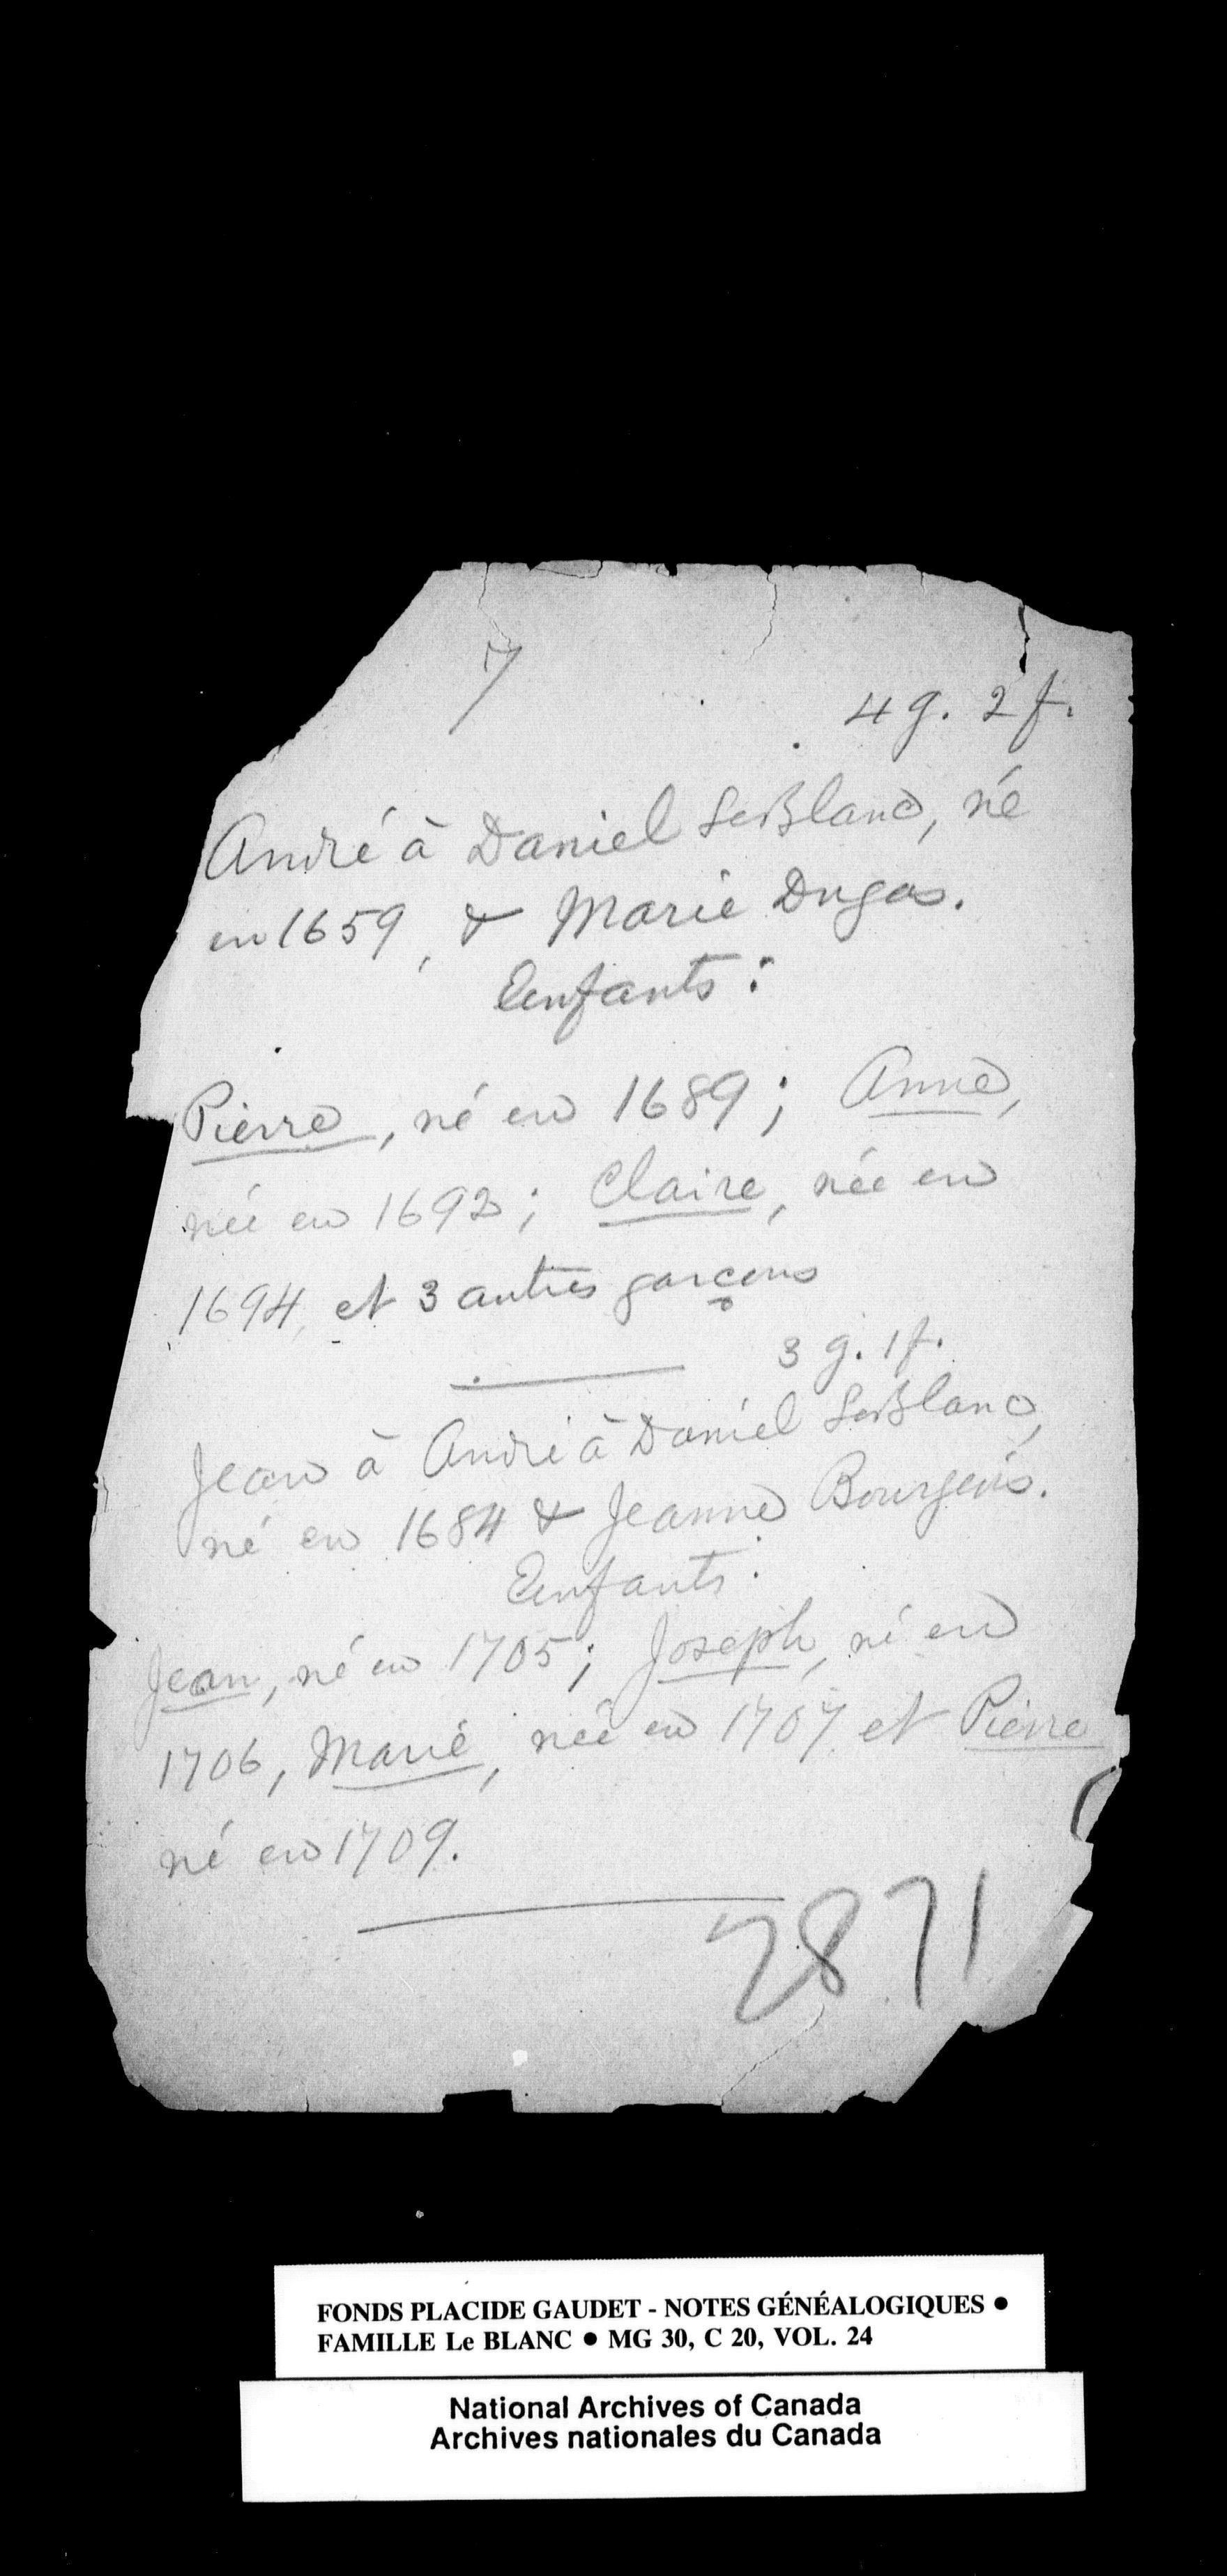 7
4 g. 2 f.
André à Daniel LeBlanc, né
en 1659, & Marie Dugas.
Enfants :
Pierre, né en 1689 ; Anne,
née en 1692 ; Claire, née en
1694, et 3 autres garçons
3 g. 1 f.
Jean à André à Daniel LeBlanc,
né en 1684 & Jeanne Bourgeois.
Enfants :
Jean, né en 1705 ; Joseph, né en
1706, Marie, née en 1707 et Pierre
né en 1709.
2871
FONDS PLACIDE GAUDET - NOTES GÉNÉALOGIQUES ●
FAMILLE Le BLANC ● MG 30, C 20, VOL. 24
National Archives of Canada
Archives nationales du Canada